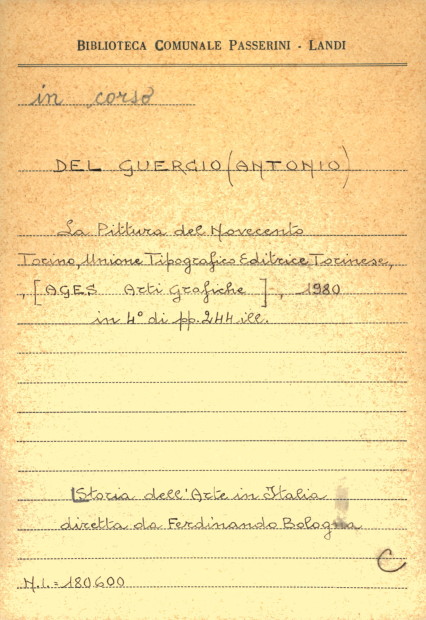 BIBLIOTECA COMUNALE PASSERINI - LANDI
in corso
DEL GUERCIO (ANTONIO)
La Pittura del Novecento
Torino, Unione Tipografico Editrice Torinese,
, [AGES Arti Grafiche ], 1980
in 4° di pp. 244 ill.
Storia dell'Arte in Italia
diretta da Ferdinando Bologna
C
N.i.= 180600